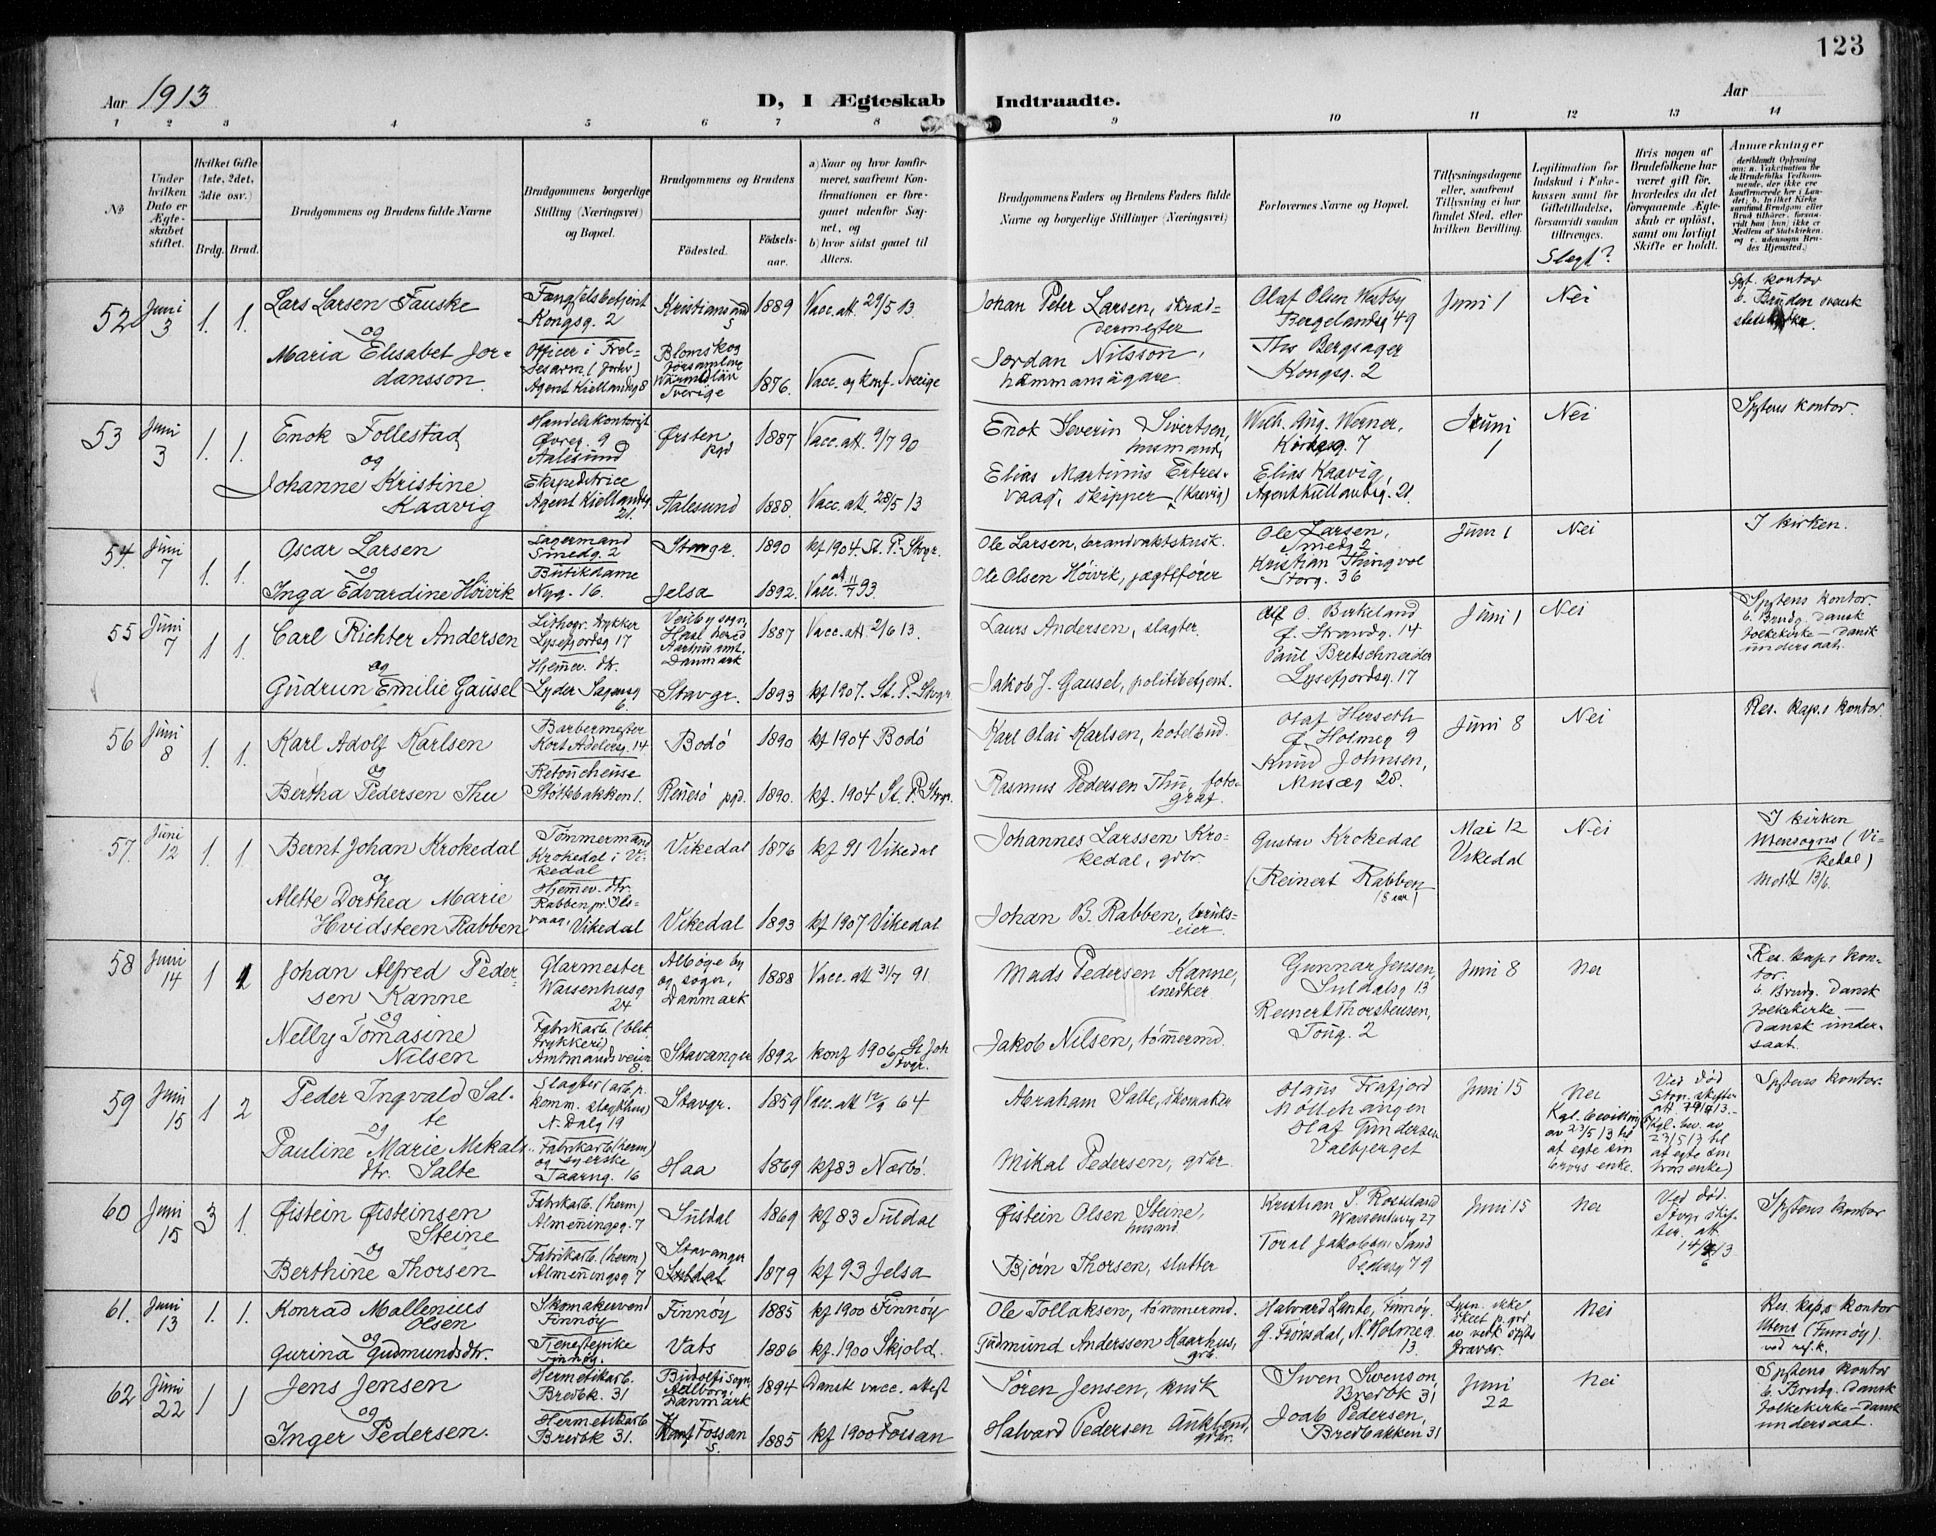 123
Aar 1913
D, I Ægteskab Indtraadte.
Aar
1 2 3 4 5 6 7 8 9 10 11 12 13 14
No
Under hvilken Dato er Ægteskabet stiftet.
Hvilket Gifte (1ste, 2det, 3die osv.)
Brdg. Brud.
Brudgommens og Brudens fulde Navne
Brudgommens borgerlige Stilling (Næringsvei) og Bopæl.
Brudgommens og Brudens
Fødested.
Fødselsaar.
a) Naar og hvor konfirmeret, saafremt Konfirmationen er foregaaet udenfor Sognet, og
b) hvor sidst gaaet til Alters.
Brudgommens Faders og Brudens Faders fulde Navne og borgerlige Stillinger (Næringsvei)
Forlovernes Navne og Bopæl.
Tillysningsdagene eller, saafremt Tillysning ei har fundet Sted, efter hvilken Bevilling.
Legitimation for Indskud i Enkekassen samt for Giftetilladelse, forsaavidt saadan tiltrænges.
Slægt?
Hvis nogen af Brudefolkene har været gift før, hvorledes da det foregaaende Ægteskab er opløst, samt om lovligt Skifte er holdt.
Anmærkninger
52 Juni 3 1. 1.
Lars Larsen Fauske
og
Maria Elisabet Jordansson.
Fængselsbetjent
Kongsg. 2
Officer i Frelsesarm. (forhv)
Agent Kiellandsg 8
Kristianssund S 1889 Vacc. att. 29/5 13
Blomskog församling Värmlands län Sverige 1876. Vacc. og konf. Sverige
Johan Peter Larsen, skræddermester
Jordan Nilsson, hemmansägare
Olaf Olsen Westby
Bergelandsg 49
Ths Bergsager
Kongsg. 2
Juni 1 Nei
Spt. kontor
b. Bruden svensk statskirke.
53 Juni 3 1. 1.
Enok Follestad
og
Johanne Kristine Kaavig
Handelskontorist
Øvreg. 9
Aalesund
Ekspeditrice
Agent Kiellandsg 21.
Ørsten pgd 1887 Vacc. att. 9/7 90
Aalesund 1888. Vacc. att. 28/5 13
Enok Severin Sivertsen, husmand,
Elias Martinus Ertresvaag, skipper (Kaavig)
Wilh. Aug. Werner,
Kirkeg. 7
Elias Kaavig,
Agent Kiellandsg. 21.
Juni 1 Nei
Sptens kontor.
54. Juni 7 1. 1.
Oscar Larsen
og
Inga Edvardine Høivik
Lagermand
Smedg. 2
Butikdame
Nyg. 16.
Stavgr. 1890 kf 1904. St. P. Stvgr.
Jelsa 1892. Vacc. att 11/7 93.
Ole Larsen, brandvaktskusk.
Ole Olsen Høivik, jægtefører
Ole Larsen,
Smedg 2
Kristian Thingvol
Storg. 36
Juni 1 Nei
I kirken.
55 Juni 7 1 1.
Carl Richter Andersen
og
Gudrun Emilie Gausel
Lithogr. trykker
Lysefjordsg 17
Hjemev. dtr.
Lyder Sagensg 6.
Veilby sogn, Hasl herred Aarhus amt, Danmark 1887 Vacc. att. 2/6 13.
Stavgr. 1893 kf 1907. St. P. Stvgr
Laurs Andersen, slagter.
Jakob J. Gausel, politibetjent.
Alf O. Birkeland
Ø. Strandg. 14
Paul Bretschneider
Lysefjordsg. 17
Juni 1 Nei
Sptens kontor.
b. Brudg. Dansk folkekirke – Dansk undersaat.
56 Juni 8 1. 1.
Karl Adolf Karlsen
og
Bertha Pedersen Thu
Barbermester
Kort Adelersg. 14
Retoucheuse
Støttebakken 1.
Bodø 1890 kf 1904 Bodø
Rennesø pgd. 1890. kf. 1904 St. P. Stvgr.
Karl Olai Karlsen, hotelbud.
Rasmus Pedersen Thu, fotograf.
Olaf Herseth
Ø. Holmeg 9
Knud Johnsen,
Musæg 28.
Juni 8 Nei
Res. kap.s kontor
57. Juni 12 1. 1.
Bernt Johan Krokedal
og
Alette Dorthea Marie Hvidsteen Rabben
Tømmermand
Krokedal i Vikedal
Hjemev. dtr.
Rabben pr. Ilsvaag, Vikedal
Vikedal 1876 kf 91 Vikedal
Vikedal 1893 kf 1907 Vikedal
Johannes Larssen Krokedal, gdbr.
Johan B. Rabben, bruks-eier.
Gustav Krokedal
(Reinert Rabben
Mai 12 Vikedal Nei
I kirken
Utensogns (Vikedal)
Meldt 13/6.
58 Juni 14 1 1
Johan Alfred Pedersen Kanne
og
Nelly Tomasine Nilsen
Glarmester
Waisenhusg 24
Fabrikarb. (blektrykkeri)
Amtmandsveien 8.
Albøge by og sogn, Danmark 1888 Vacc. att 31/7 91
Stavanger 1892 konf 1906 St Joh Stvgr.
Mads Pedersen Kanne, snedker
Jakob Nilsen, tømmermd.
Gunnar Jensen,
Suldalsg 13
Reinert Thorsteinsen,
Toug. 2
Juni 8 Nei
Res. kap.s kontor.
b. Brudg. Dansk folkekirke – Dansk undersaat.
59 Juni 15 1 2
Peder Ingvald Salte
og
Pauline Marie Mikalsdtr. Salte
Slagter (arb. p. komm. slagthus)
N. Dalg 19
Fabrikarb (herm) og syerske
Taarng. 16
Stavgr. 1859 Vacc. att 12/9 64
Haa 1869 kf 83 Nærbø.
Abraham Salte, skomaker
Mikal Pedersen, gdbr.
Hans Frafjord
Møllehaugen
Olaf Gundersen
Valbjerget
Juni 15 Nei
Kgl. bevilling av 23/5 13 til at egte sin brors enke.
Ved død
Stvgr. skifter att.
(Kgl. bev. av 23/5 13 til at egte sin brors enke)
Sptens kontor.
60 Juni 15 3 1.
Øistein Øisteinsen Steine
og
Berthine Thorsen
Fabrikarb. (herm)
Almenningsg. 7
Fabrikarb. (herm)
Almenningsg 7
Suldal 1869 kf 83 Suldal
Stavanger Suldal 1879 kf 93 Jelsa
Øistein Olsen Steine, husmd.
Bjørn Thorsen, slutter
Kristian S. Rossland
Waisenhusg 27
Toral Jakobsen Sand
Pedersg 79
Juni 15 Nei
Ved død.
Stvgr skifter. att. 14/6 13
Sptens kontor
61. Juni 13 1. 1.
Konrad Mallenius Olsen
og
Gurina Gudmundsdtr.
Skomakersvend
Finnøy
Tjenestepike
Finnøy.
Finnøy 1885 kf 1900 Finnøy
Vats 1886 kf. 1900 Skjold.
Ole Tollaksen, tømmermd.
Gudmund Anderssen Haarhus, grb.
Halvard Lante, Finnøy.
G. Frønsdal, N. Holmeg. 13
Lysn. ikke skeet
Nei
Res. kaps kontor
Utens (Finnøy).
62 Juni 22 1 1
Jens Jensen
og
Inger Pedersen.
Hermetikarb.
Bredbk 31
Hermetikarb
Bredbk 31.
Budolfi Sogn, Aalborg, Danmark 1894 Dansk vacc. attest
Fossan S. 1885 kf 1900 Fossan
Søren Jensen, kusk
Halvard Pedersen Auklend, gdbr.
Swen Swenson
Bredbk 31
Joab Pedersen,
Bredbakken 31
Juni 22 Nei
Sptens kontor
b. Brudg. Dansk folkekirke – dansk undersaat.